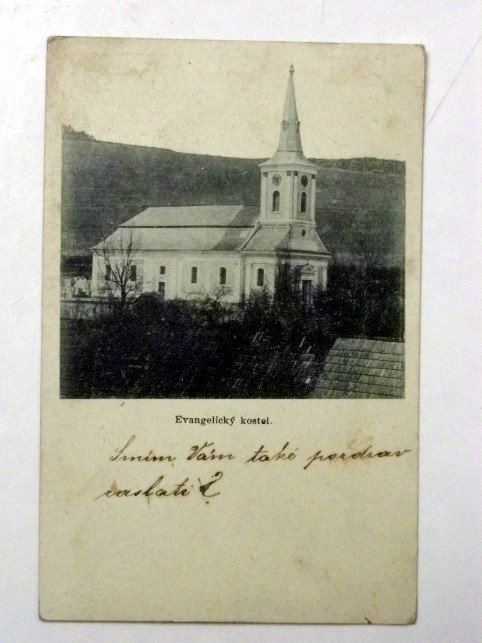 Evangelický kostel.
Smím Vám také pozdrav
zaslati?